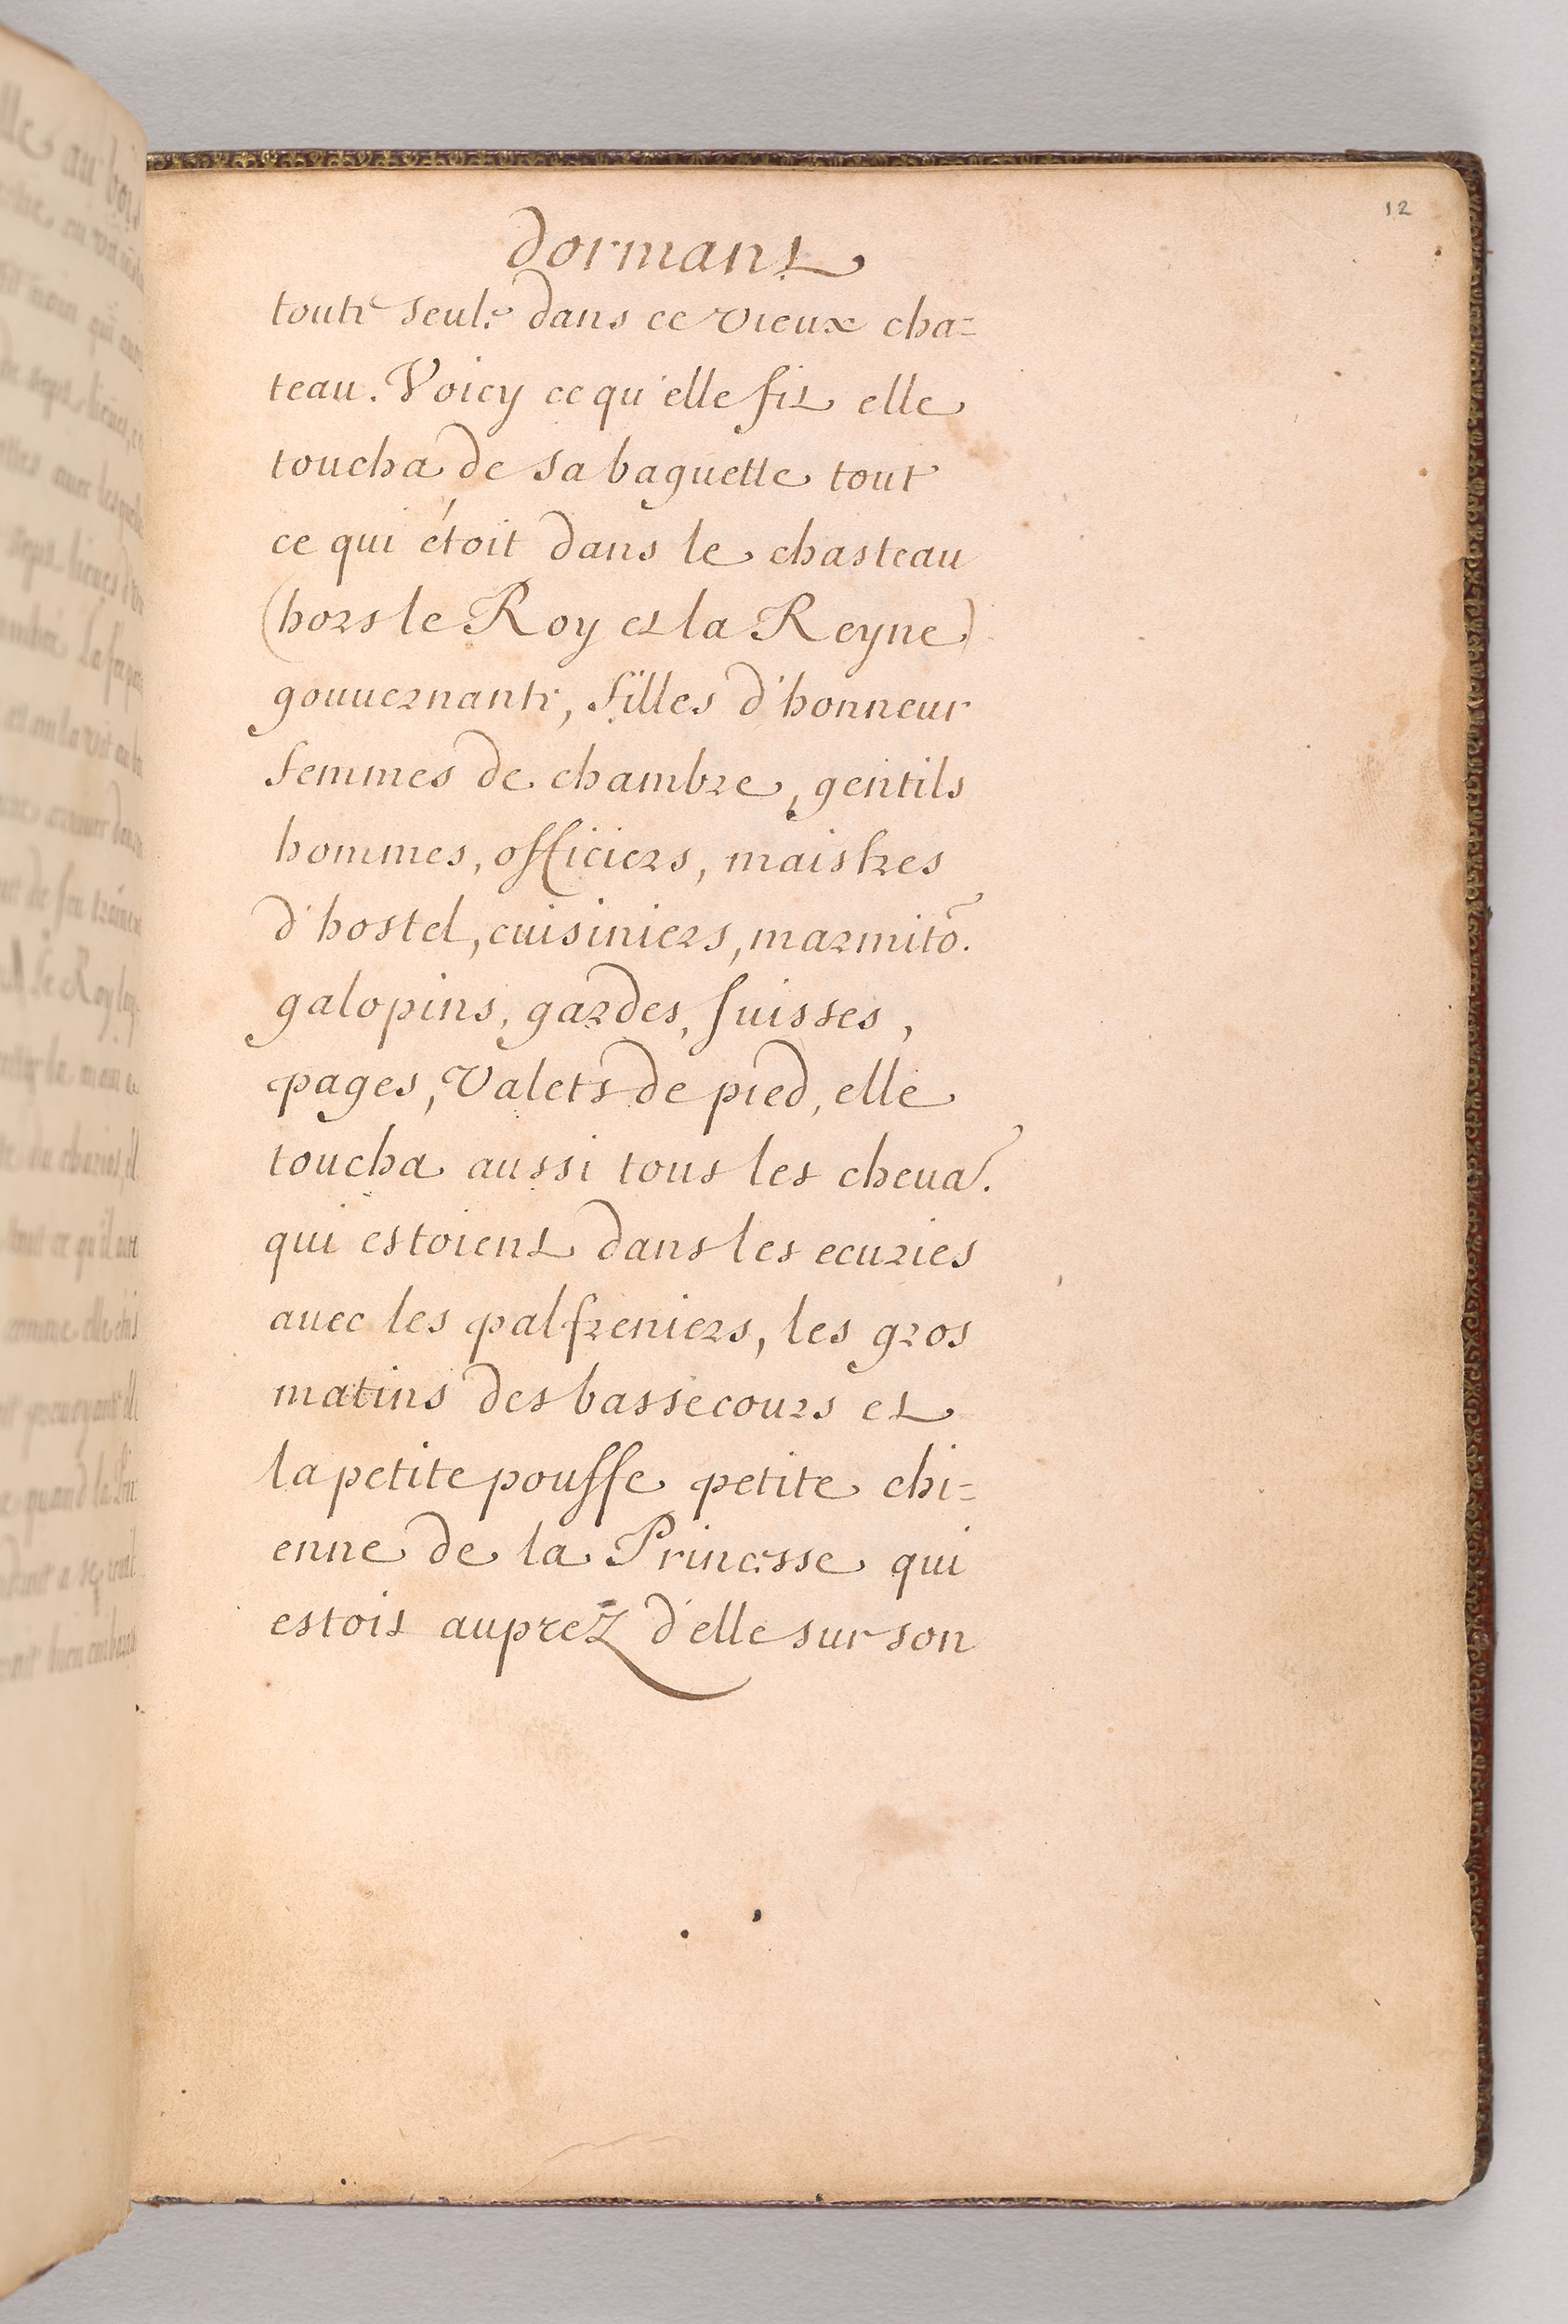 12
dormant
toute seule dans ce vieux cha=
teau. Voicy ce qu'elle fit elle
toucha de sa baguette tout
ce qui étoit dans le chasteau
(hors le Roy et la Reyne)
gouuernante, filles d'honneur
femmes de chambre, gentils
hommes, officiers, maistres
d'hostel, cuisiniers, marmitõ.
galopins, gardes, suisses,
pages, valets de pied, elle
toucha aussi tous les cheua.
qui estoient dans les ecuries
auec les palfreniers, les gros
matins des bassecours et
la petite pouffe petite chi=
enne de la Princesse qui
estoit auprez d'elle sur son